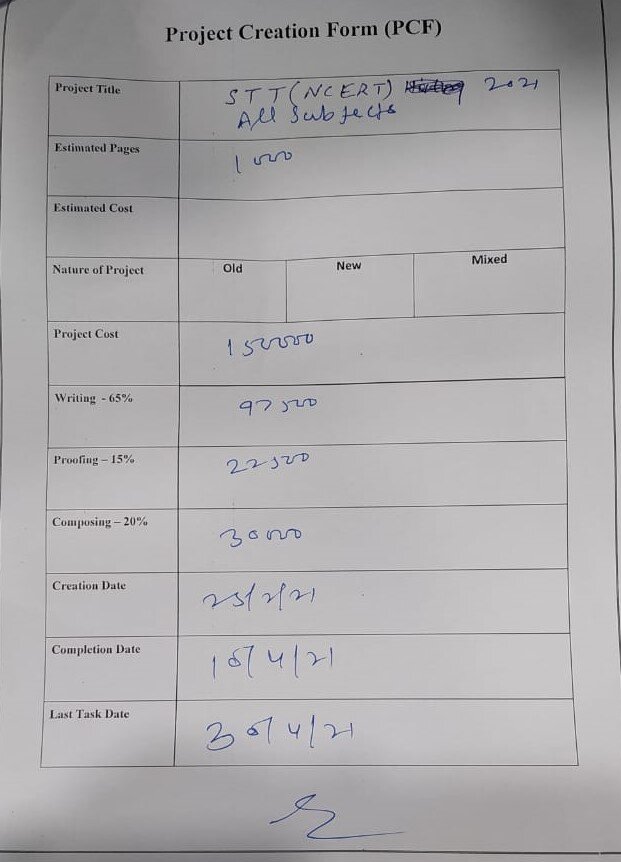 Project Creation Form (PCF)
Project Title
STT (NCERT) 2021
All Subjects
Estimated Pages
1000
Estimated Cost
Nature of Project
Old
New
Mixed
Project Cost
150000
Writing - 65%
97500
Proofing – 15%
22500
Composing – 20%
30000
Creation Date
25/2/21
Completion Date
10/4/21
Last Task Date
30/4/21